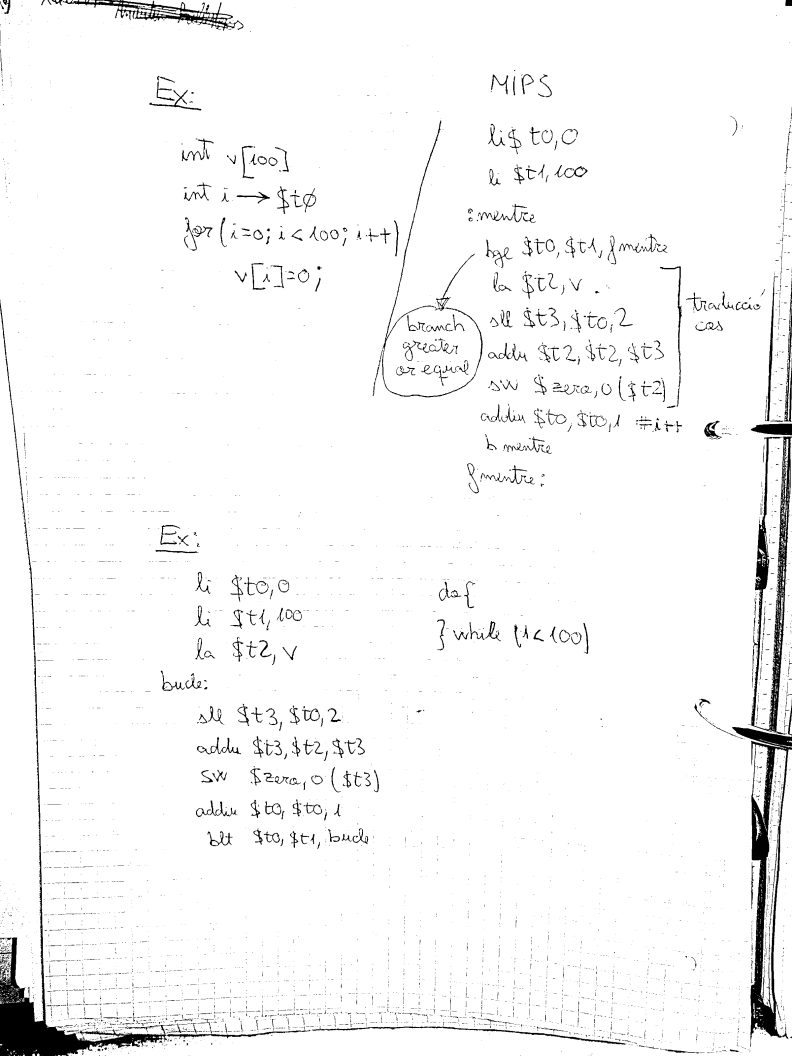 Ex:
int v[100]
int i → $tø
for (i=0; i<100; i++)
v[i]=0;
MIPS
li $ t0,0
li $t1,100
:mentre
bge $t0, $t1, fmentre
la $t2, v .
sll $t3, $t0, 2
addu $t2, $t2, $t3
sw $zero, 0 ($t2)
addiu $t0, $t0, 1 #i++
b mentre
fmentre:
branch
greater
or equal
traducció
cos
Ex:
li $t0,0
li $t1, 100
la $t2, v
bucle:
sll $t3, $t0, 2
addu $t3, $t2, $t3
sw $zero, 0 ($t3)
addiu $t0, $t0, 1
blt $t0, $t1, bucle
do{
} while (i<100)